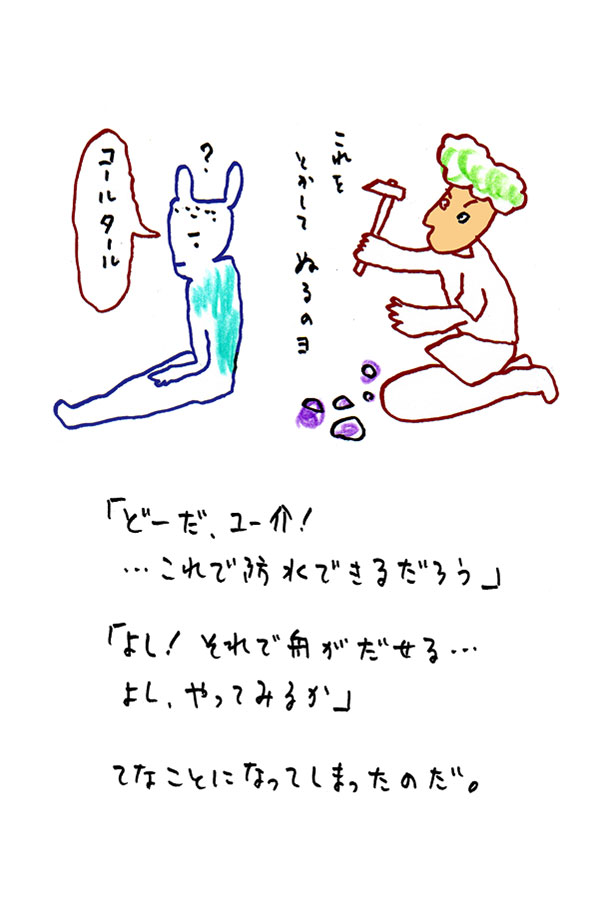 これを
とかして ぬるのヨ
?
コールタール
「どーだ、ユー介!
…これで防水できるだろう」
「よし! それで舟がだせる…
よし、やってみるか」
てなことになってしまったのだ。